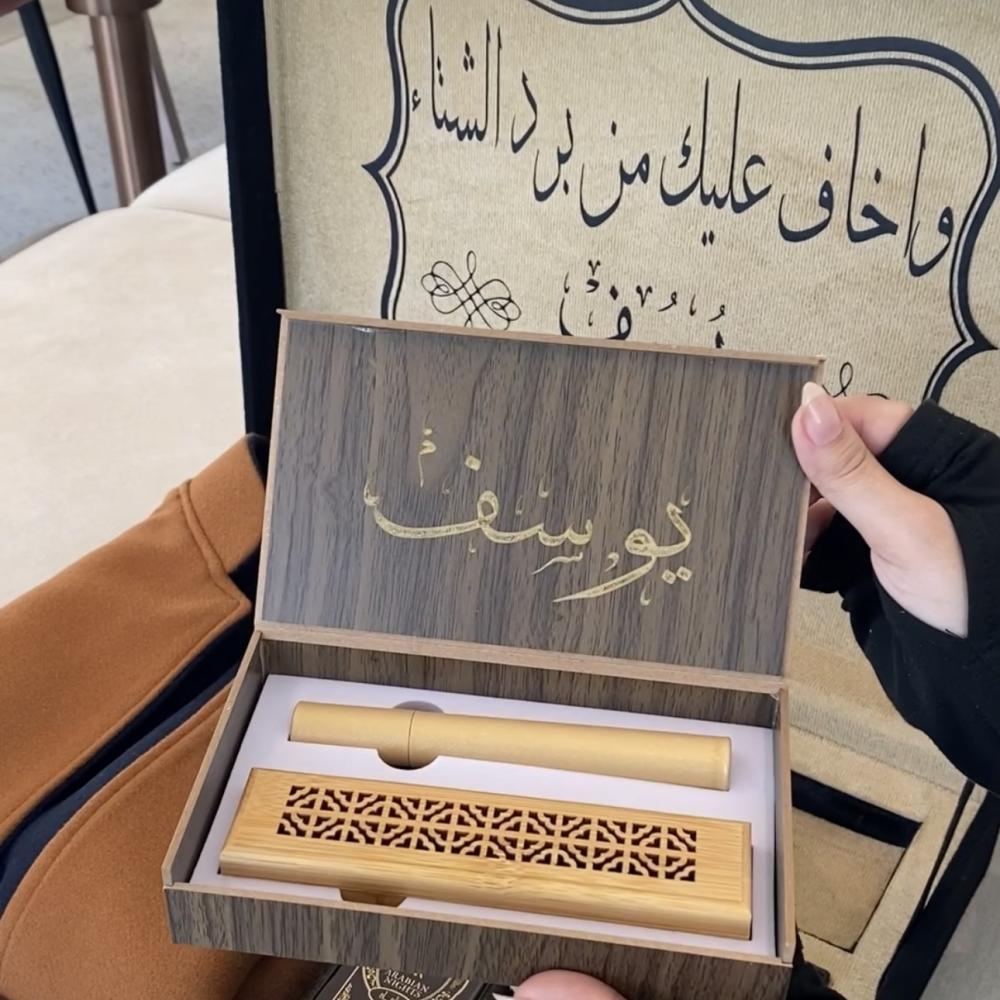 واخاف عليك من برد الشتاء
يوسف
ARABIAN
NIGHTS